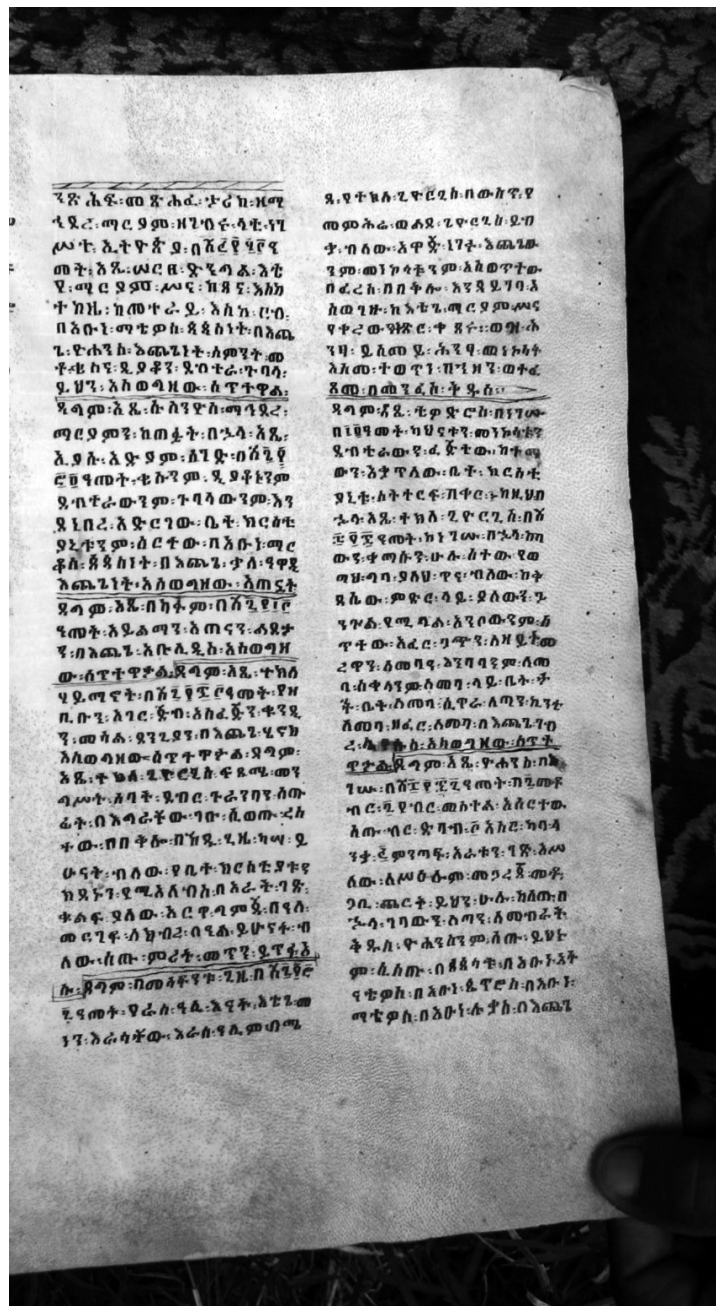 ንጽሕፍ፡መጽሐፈ፡ታሪክ፡ዘማ
ኅደረ፡ማርያም፡ዘገብሩ፡ላቲ፡ነገ
ሥተ፡ኢትዮጵያ፡በ
መት፡አጼ፡ሠርፀ፡ድንግል፡እቴ
ጌ፡ማርያም፡ሥና፡ከጻና፡እስከ
ተከዚ፡ከመተራይ፡እስከ፡ርብ፡
በአቡነ፡ማቴዎስ፡ጳጳስነት፡በእጨ
ጌ፡ዮሐንስ፡እጨጌነት፡ለምንት፡መ
ቶ፡ቄስና፡ዲያቆን፡ደብተራ፡ጉባላ፡
ይህን፡አስወግዘው፡ሰጥተዋል፡
ዳግም፡አጼ፡ሱስንዮስ፡ማኅደረ፡
ማርያምን፡ከጠፏት፡በኋላ፡አጼ፡
ኢያሱ፡አድያም፡ሰገድ፡
ዓመት፡ቄሱንም፡ዲያቆኑንም
ደብተራውንም፡ጉባላውንም፡እን
ደነበረ፡አድርገው፡ቤት፡ክርስቲ
ያኒቱንም፡ሰርተው፡በአቡነ፡ማር
ቆስ፡ጳጳስነት፡በእጨጌ፡ቃለ፡ዓዋዲ
እጨጌነት፡አስወግዘው፡አጠኗት
ዳግም፡አጼ፡በካፋም፡
ዓመት፡አይልማን፡አጠናን፡ሐደታ
ን፡በእጨጌ፡አቡሊዲስ፡አስወግዘ
ው፡ሰጥተዋታል፡ዳግም፡አጼ፡ተክለ
ሃይማኖት፡ዓመት፡የዘ
ቢቡን፡አገር፡ጅብ፡አስፈጅን፡ቁንዲ
ን፡መሳል፡ደንጊያን፡በእጨጌ፡ሄኖክ
አስወግዘው፡ሰጥተዋታል፡ዳግም፡
አጼ፡ተክለ፡ጊዮርጊስ፡ፍጻሜ፡መን
ግሥት፡አባት፡ደብር፡ጉራንባን፡ሰው
ፊት፡በእግራቸው፡ገቡ፡ሲወጡ፡ረስ
ተው፡በበቅሎ፡በኸዱ፡ጊዜ፡ካሣ፡ይ
ሁናት፡ብለው፡የቤት፡ክርስቲያቱን
ክዳኑን፡የሚአለብስ፡በአራት፡ገጽ፡
ቁልፍ፡ያለው፡አርዋ፡ባምጄ፡በዓለ፡
መርገፍ፡ለክብረ፡በዓል፡ይሁናት፡ብ
ለው፡ሰጡ፡ምሪት፡መጥን፡ይጥፋእ
ሱ፡ዳግም፡በመሳፍንቱ፡ጊዜ፡
ዓመት፡የራስ፡ዓሊ፡እናት፡እቴጌ፡መ
ነን፡እራሳቸው፡እራስ፡ዓሊም፡
ዳ፡የተክሉ፡ጊዮርጊስ፡በውስጥ፡የ
መምሕሬ፡ወሐደ፡ጊዮርጊስ፡ደብ
ቃ፡ብለው፡አዋጅ፡ነገቶ፡እጨጌው
ንም፡መነኮሳቱንም፡አስወጥተው
በፈረስ፡በበቅሎ፡እንዳይገባ፡አ
ስወገዙ፡ከእቴጌ፡ማርያም፡ሥና
ንዛ፡ይስመይ፡ሕንፃ፡ወነኮሳት
እለመ፡ተወጥነ፡በንዘን፡ወተፈ
ጸመ፡በመንፈስ፡ቅዱስ፡
ዳግም፡አጼ፡ቴዎድሮስ፡በነገሡ
ዓመት፡ካህናቱን፡መነኮሳቱን
ደብተራውን፡ፈጅተው፡ከተማ
ውን፡አቃጥለው፡ቤት፡ክርስቲ
ያኒቱ፡ስትተርፍ፡በቀር፡ከዚህ፡በ
ኋላ፡አጼ፡ተክለ፡ጊዮርጊስ፡
ዓመት፡ከነገሡ፡በኋላ፡ከ
ውን፡ቀማሱን፡ሁሉ፡ሰተው፡የወ
ማህ፡ግባ፡ያለህ፡ዋና፡ብለው፡ከቀ
ደሴው፡ምድር፡ላይ፡ያለውን፡
ንጕል፡የሚባል፡አንሶውንም፡ሰ
ጥተው፡አፈር፡ውጭን፡ለዘይት፡መ
ረዋን፡ለመባና፡እንባባንም፡ለመ
ባ፡ስቀላንም፡ስመባ፡ላይ፡ቤት፡ታ
ች፡ቤት፡ስመባ፡ሲዋራ፡ለጣን፡ኪንቲ
ለመባ፡ዘፈር፡ለመባ፡በእጨጌ፡ገብ
አስወግዘው፡ሰጥተ
ዋታል፡ዳግም፡አጼ፡ዮሐንስ፡በነ
ገሡ፡ዓመት፡መቶ
ብር፡ብር፡መስተል፡አሰርተው
ሰጡ፡ብር፡ድባብ፡አክሰር፡ካባላ
ንቃ፡ምንጣፍ፡አራቱን፡ገጽ፡እሥ
ለው፡ለሥዕሉም፡መጋረጃ፡መቶ፡
ጋቢ፡ጨርት፡ይህን፡ሁሉ፡ከሰጡ፡በ
ኋላ፡ገባውን፡ስጣን፡ለመብራት
ቅዱስ፡ዮሐንስንም፡ሰጡ፡ይህኑ
ም፡ሲሰጡ፡በጳጳሳቱ፡በአቡነ፡አት
ናቴዎስ፡በአቡነ፡ጴጥሮስ፡በአቡነ፡
ማቴዎስ፡በአቡነ፡ሉቃስ፡በእጨጌ